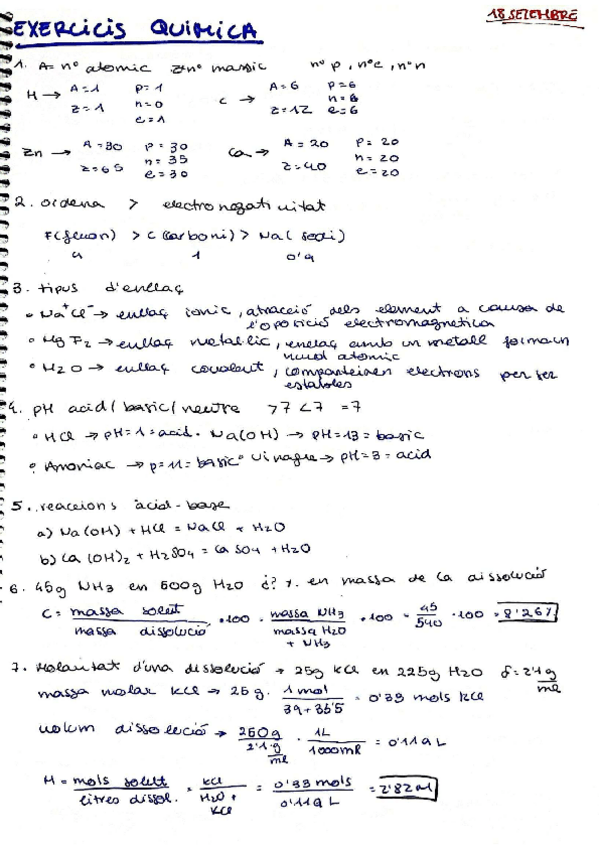 EXERCICIS QUIMICA
18 SETEMBRE
1. A = nº atomic Z = nº massic nº p, nº e, nº n
H → A = 1 p = 1 C → A = 6 p = 6
Z = 1 n = 0 Z = 12 n = 6
e = 1 e = 6
Zn → A = 30 p = 30 Ca → A = 20 p = 20
Z = 65 n = 35 Z = 40 n = 20
e = 30 e = 20
2. ordena > electronegativitat
F (fluor) > C (carboni) > Na (sodi)
4 1 0'9
3. tipus d'enllaç
• Na⁺Cl⁻ → enllaç ionic, atracció dels element a causa de
l'oposició electromagnetica
• Mg F₂ → enllaç metal·lic, enllaç amb un metall formant
nuvol atomic
• H₂O → enllaç covalent, comparteixen electrons per ser
estables
4. pH acid / basic / neutre >7 <7 =7
• HCl → pH = 1 = acid • Na(OH) → pH = 13 = basic
• Amoniac → p = 11 = basic • Vinagre → pH = 3 = acid
5. reaccions àcid-base
a) Na(OH) + HCl = NaCl + H₂O
b) Ca(OH)₂ + H₂SO₄ = Ca SO₄ + H₂O
6. 45g NH₃ en 500g H₂O ¿? % en massa de la dissolució
C = massa solut / massa dissolució · 100 = massa NH₃ / massa H₂O + NH₃ · 100 = 45 / 540 · 100 = 8'26%
7. Molaritat d'una dissolució → 25g KCl en 225g H₂O δ = 2'1 g/ml
massa molar KCl → 25g · 1 mol / 39 + 35'5 = 0'33 mols KCl
volum dissolució → 250g / 2'1 g/ml · 1L / 1000ml = 0'119 L
M = mols solut / litres dissol. = KCl / H₂O + KCl = 0'33 mols / 0'119 L = 2'82M